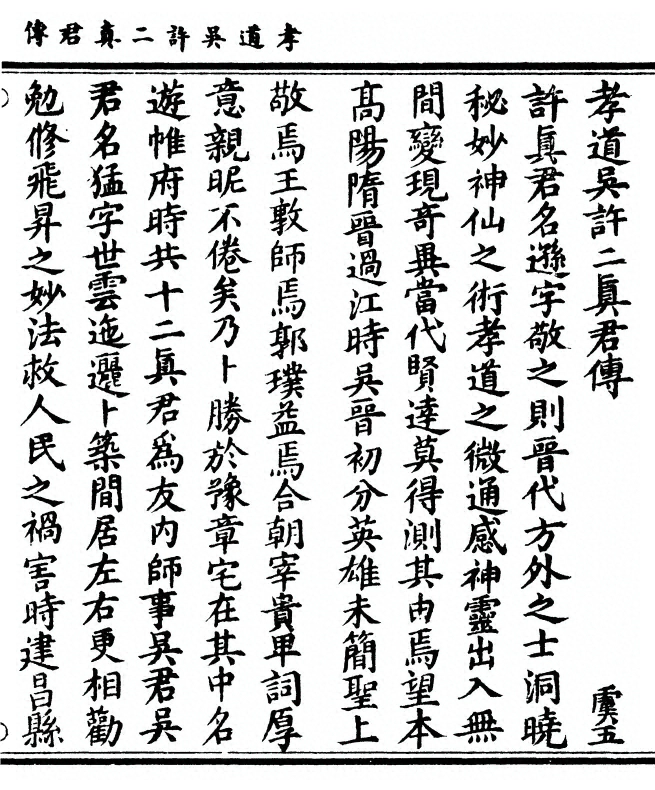 孝道吳許二真君傳
孝道吳許二眞君傳 虞五
許眞君名遜字敬之則晉代方外之士洞曉
秘妙神仙之術孝道之微通感神靈出入無
間變現奇異當代賢達莫得測其由焉望本
高陽隋晉過江時吳晉初分英雄未簡聖上
敬焉王敦師焉郭璞益焉合朝宰貴卑詞厚
意親昵不倦矣乃卜勝於豫章宅在其中名
遊帷府時共十二眞君爲友內師事吳君吳
君名猛字世雲迤邐卜築間居左右更相勸
勉修飛昇之妙法救人民之禍害時建昌縣